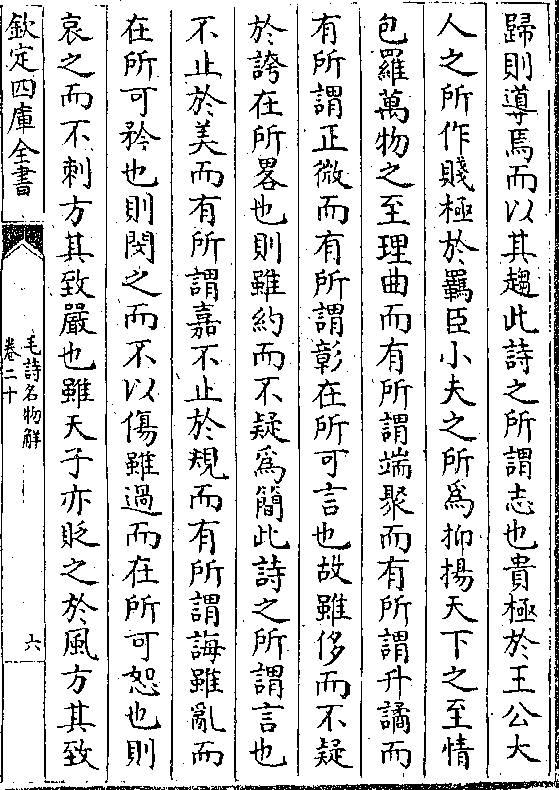 歸則導焉而以其趨此詩之所謂志也貴極於王公大
人之所作賤極於羈臣小夫之所爲抑揚天下之至情
包羅萬物之至理曲而有所謂端聚而有所謂升譎而
有所謂正微而有所謂彰在所可言也故雖侈而不疑
於誇在所畧也則雖約而不疑爲簡此詩之所謂言也
不止於美而有所謂嘉不止於規而有所謂誨雖亂而
在所可矜也則閔之而不以傷雖過而在所可恕也則
哀之而不刺方其致嚴也雖天子亦貶之於風方其致
欽定四庫全書
毛詩名物解
卷二十
六